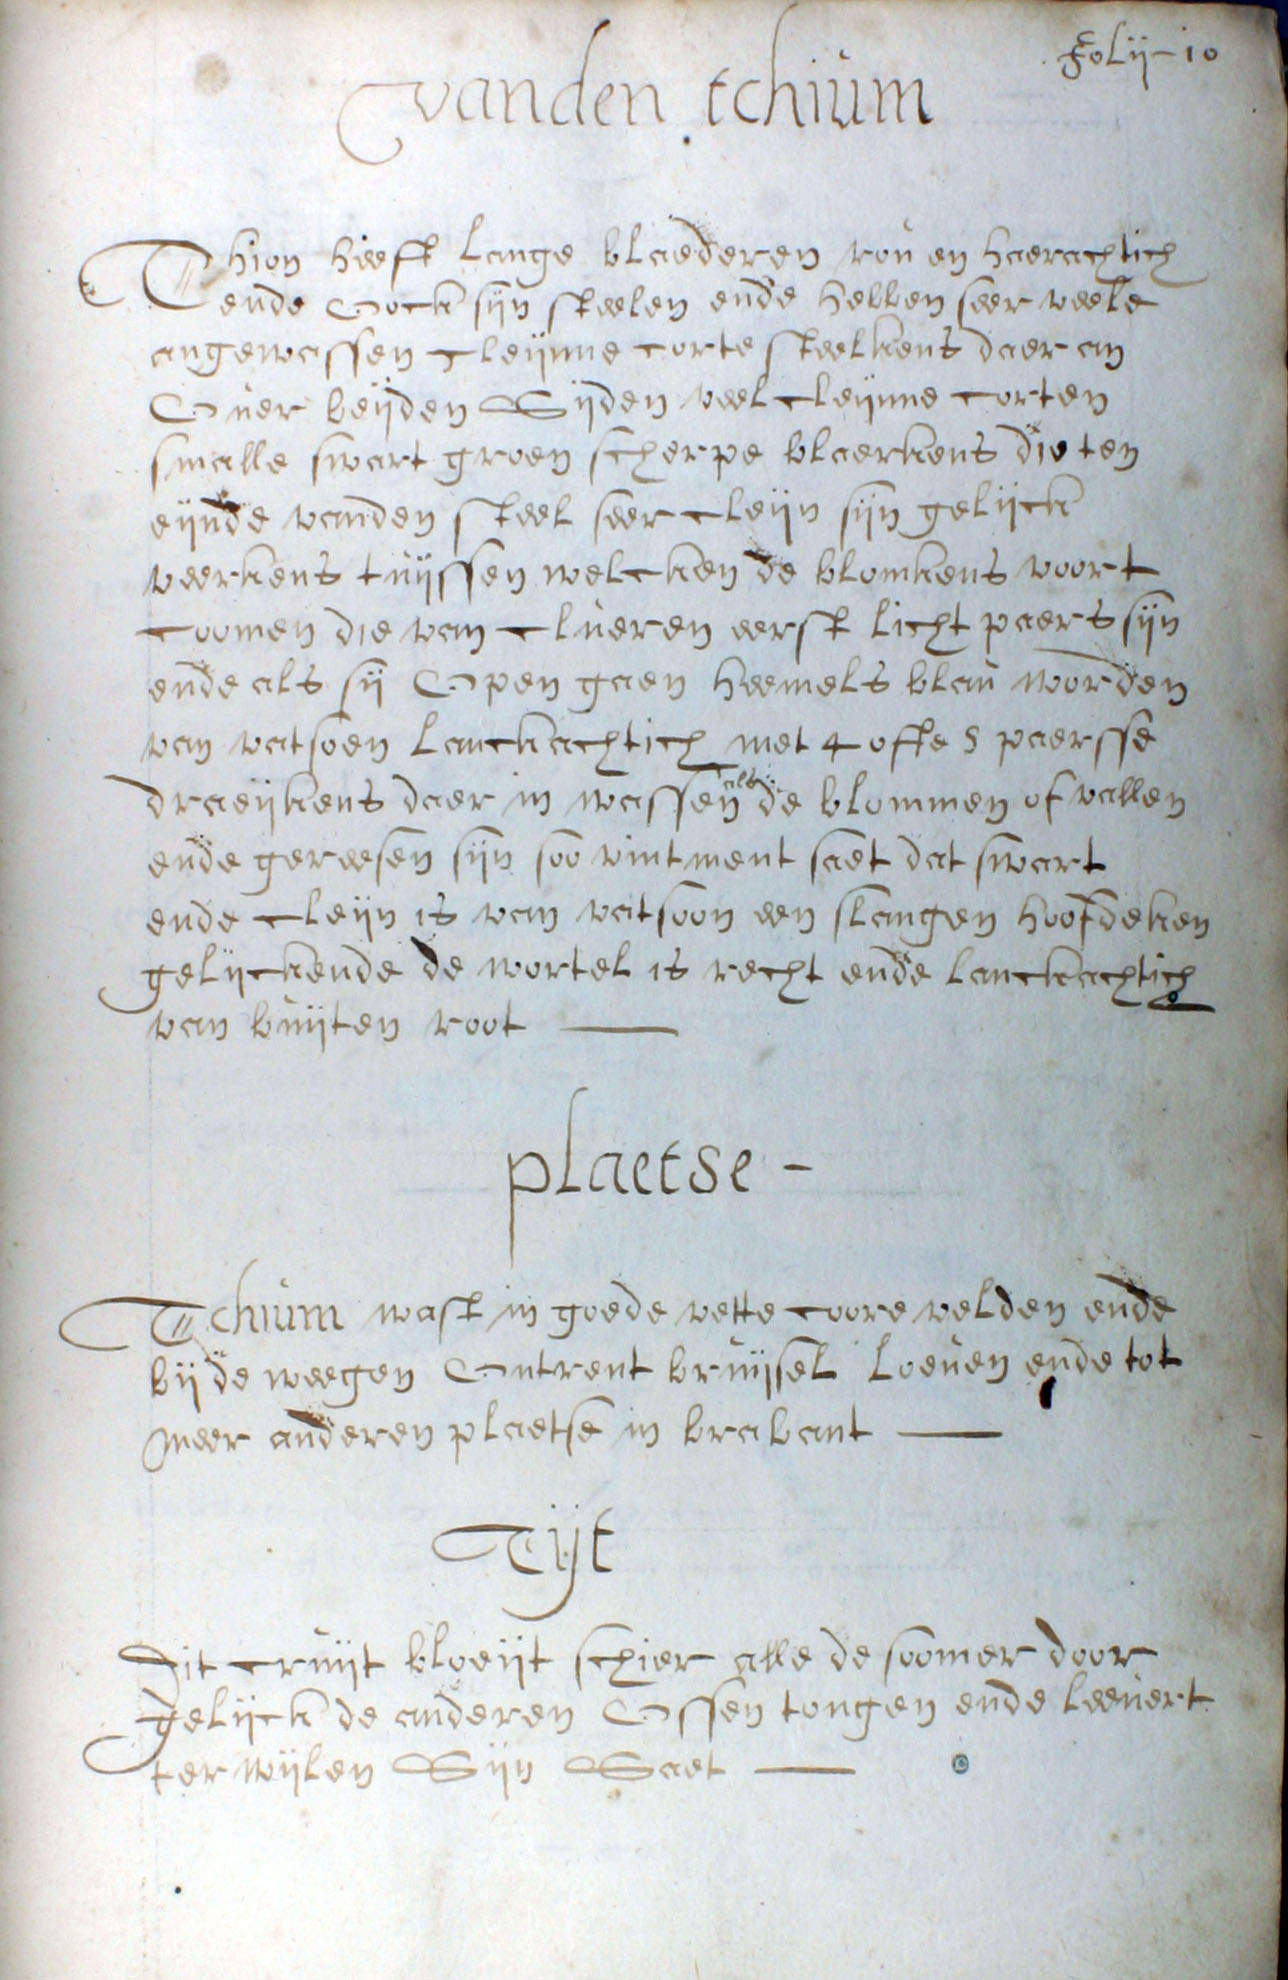 Folij - 10
vanden tchium
Thion heeft lange blaederen rou en haerachtich
ende oock sijn steelen ende hebben seer veele
angewassen cleijnne corte steelkens daer an
over beijden Sijden veel cleijnne corten
smalle swart groen scherpe blaerkens die ten
eijnde vanden steel seer cleijn sijn gelijck
veerkens tuijssen welcken de blomkens voort
coomen die van clueren eerst licht paers sijn
ende als sij open gaen heemels blau worden
van vatsoen lanckachtich met 4 offte 5 paersse
draeijkens daer in wassen als de blommen of vallen
ende gereesen sijn soo vint ment saet dat swart
ende cleijn is van vatsoon een slangen hoofdeken
gelijckende de wortel is recht ende lanckachtich
van buijten root
plaetse -
Tchium wast in goede vette coore velden ende
bij de weegen ontrent bruijsel loeuen ende tot
meer anderen plaetse in brabant
Tijt
Dit cruijt bloeijt schier alle de soomer door
gelijck de anderen ossen tongen ende leevert
ter wijlen Sijn Saet